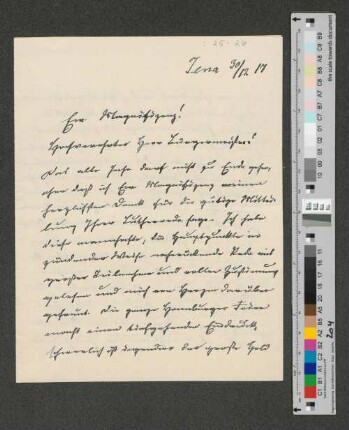 25-26
Jena 30/12 17
Ew Magnifizenz!
Hochverehrter Herr Bürgermeister!
Das alte Jahr darf nicht zu Ende gehn,
ohne daß ich Ew Magnifizenz meinen
herzlichsten Dank für die gütige Mittei-
lung Ihrer Lutherrede sage. Ich habe
diese mannhafte, die Hauptpunkte in
zündender Weise ausdrückende Rede mit
großer Teilnahme und voller Zustimmung
gelesen und mich von Herzen darüber
gefreut. Die ganze Hamburger Feier
macht einen tiefgehenden Eindruck,
schwerlich ist irgendwo der große Held
the scale towards document
204